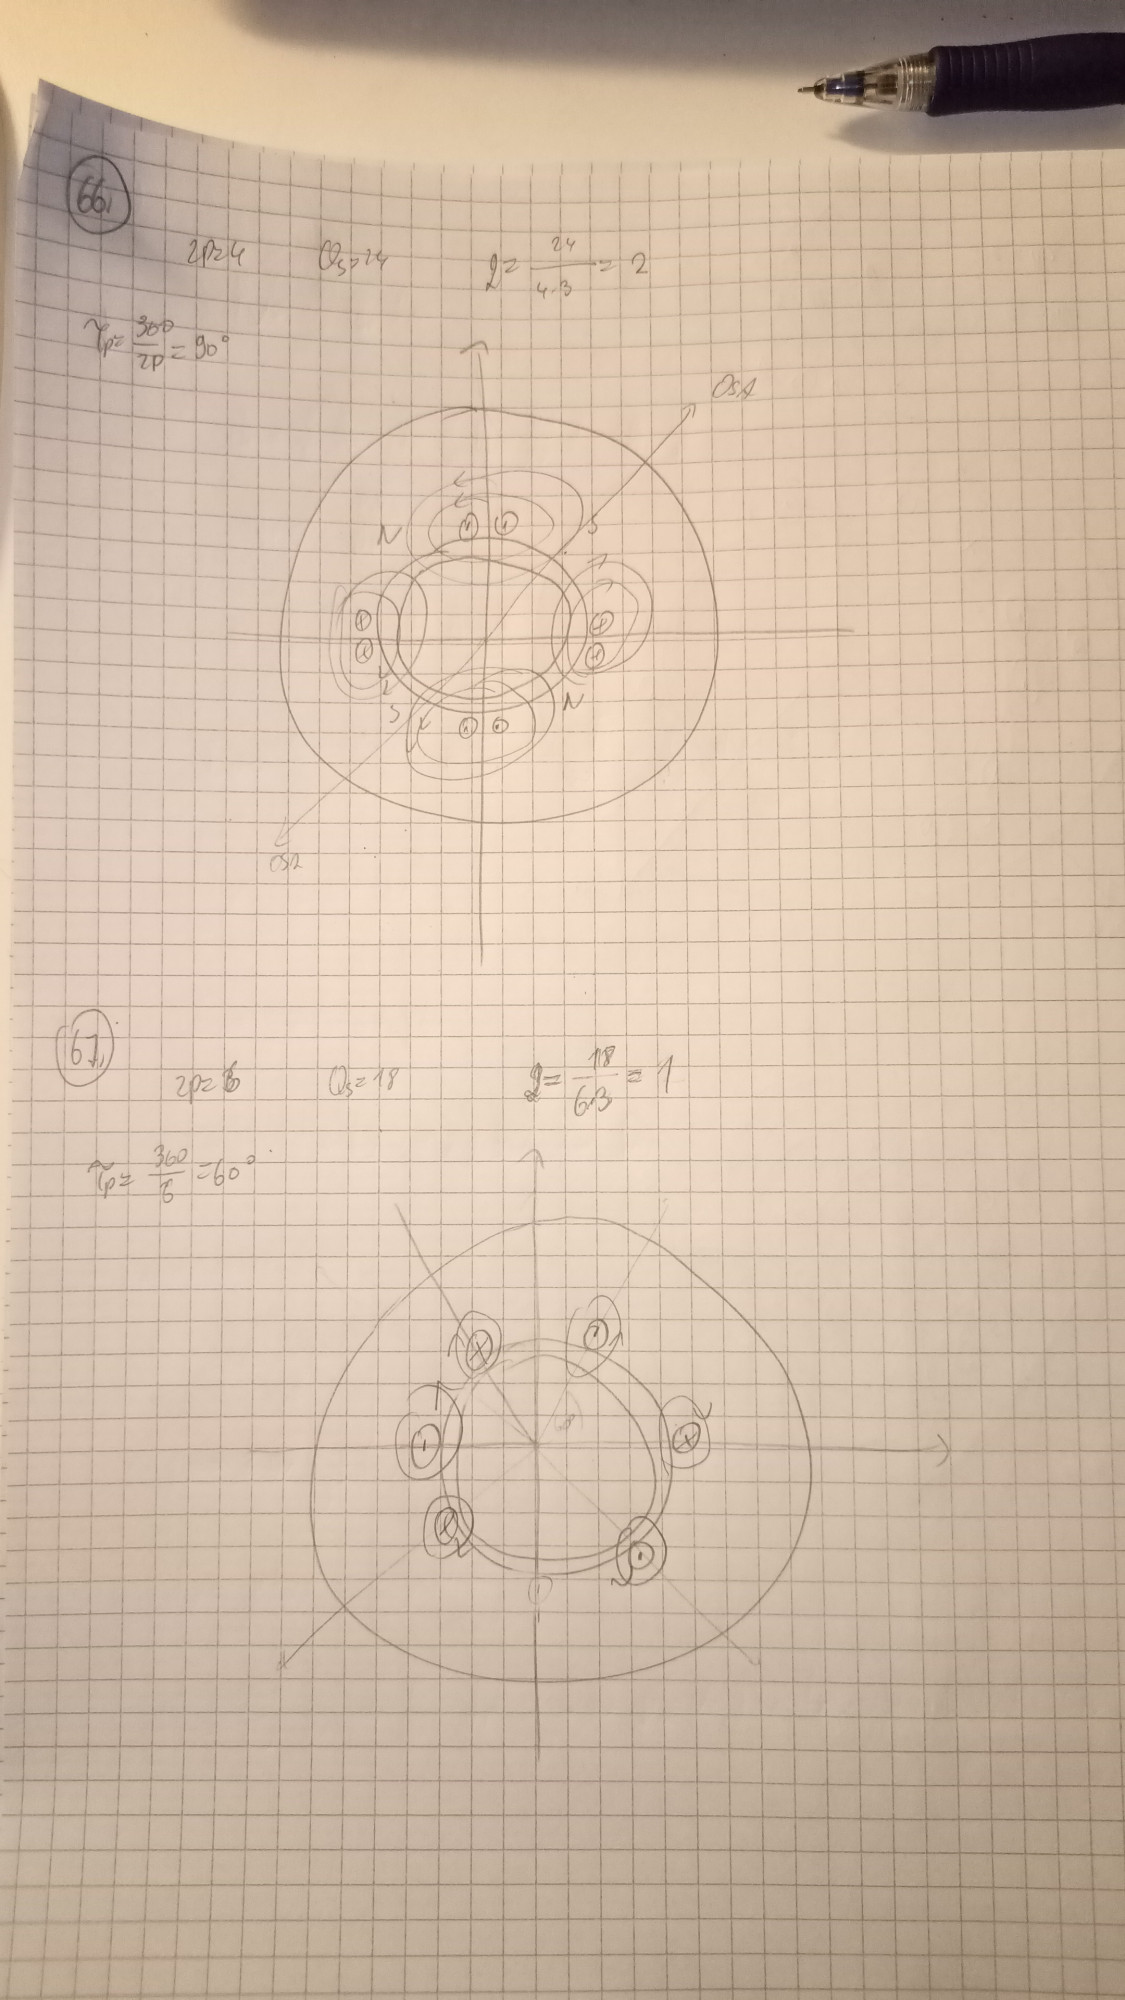 66,
2p=4 Qs=24 q= 24/4·3 = 2
τp= 360/2p = 90°
OSA
N S
S N
67,
2p=6 Qs=18 q= 18/6·3 = 1
τp= 360/6 =60°
60